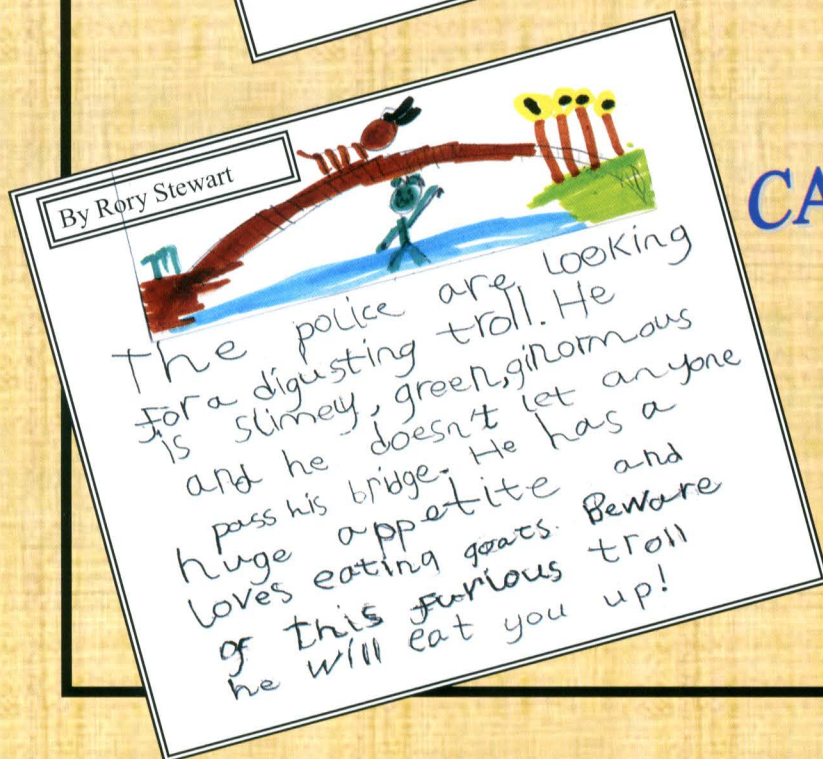 By Rory Stewart
The police are looking
for a digusting troll. He
is slimey, green, ginormous
and he doesn't let anyone
pass his bridge. He has a
huge appetite and
loves eating goats. Beware
of this furious troll
he will eat you up!
CA